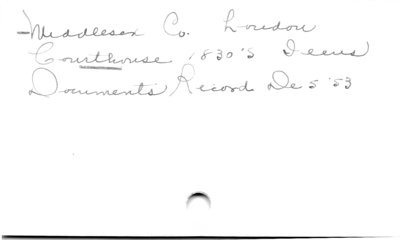 Middlesex Co. London
Courthouse 1830's Deeus
Documents Record De 5 '53